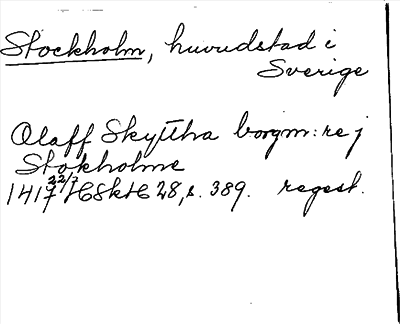 Stockholm, huvudstad i
Sverige
Olaff Skyttha borgm: re j
Stokholme
1417 22/7 HSkH 28, s. 389. regest.